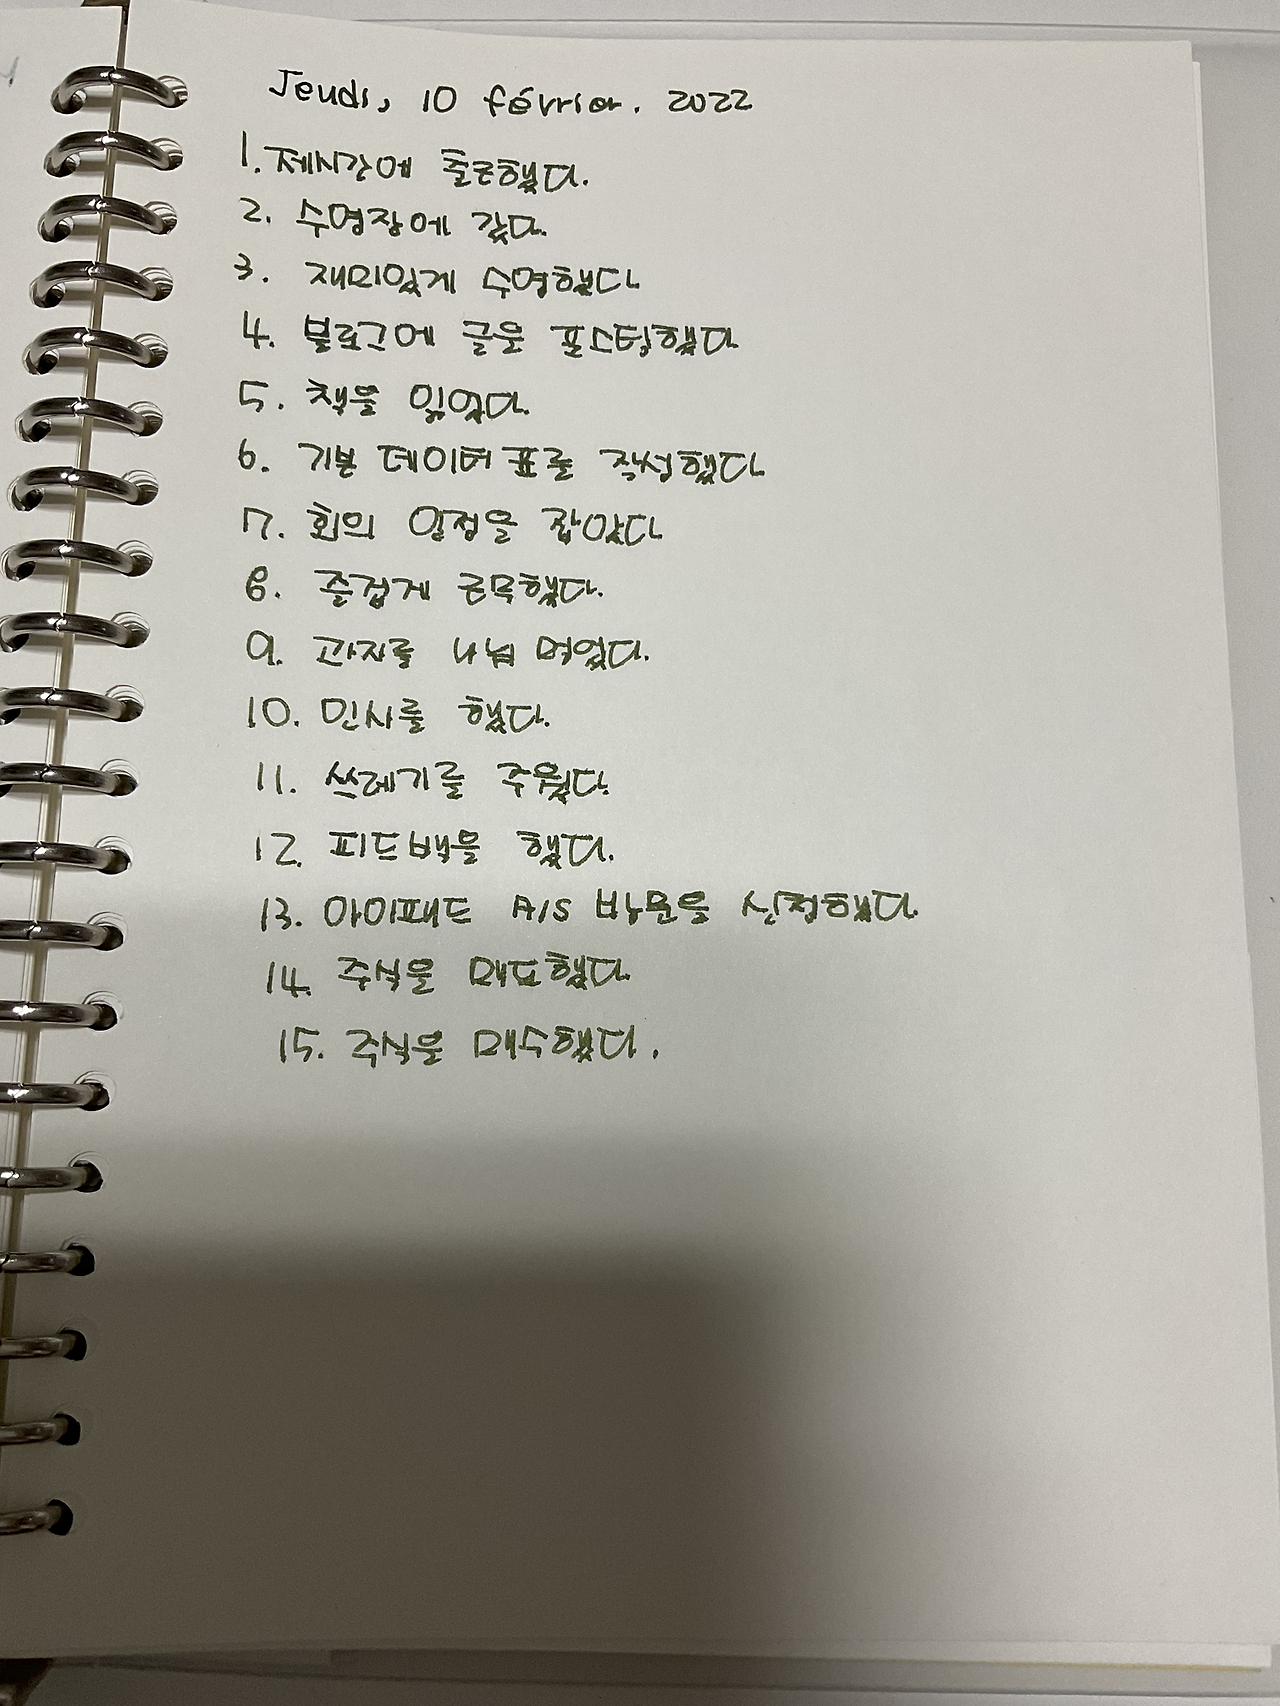 Jeudi, 10 février. 2022
1. 제시간에 출근했다.
2. 수영장에 갔다.
3. 재미있게 수영했다
4. 블로그에 글을 포스팅했다
5. 책을 읽었다.
6. 기본 데이터 표를 작성했다
7. 회의 일정을 잡았다
8. 즐겁게 근무했다.
9. 과자를 나눠 먹었다.
10. 인사를 했다.
11. 쓰레기를 주웠다.
12. 피드백을 했다.
13. 아이패드 A/S 방문을 신청했다.
14. 주식을 매도했다.
15. 주식을 매수했다.